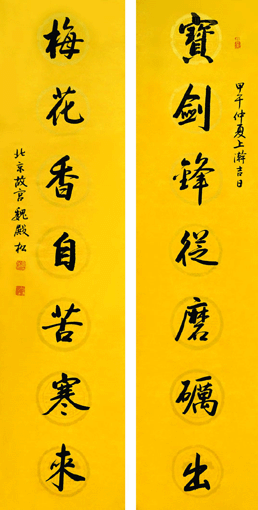 寶劍鋒從磨礪出
甲午仲夏上澣吉日
梅花香自苦寒來
北京故宮魏殿松